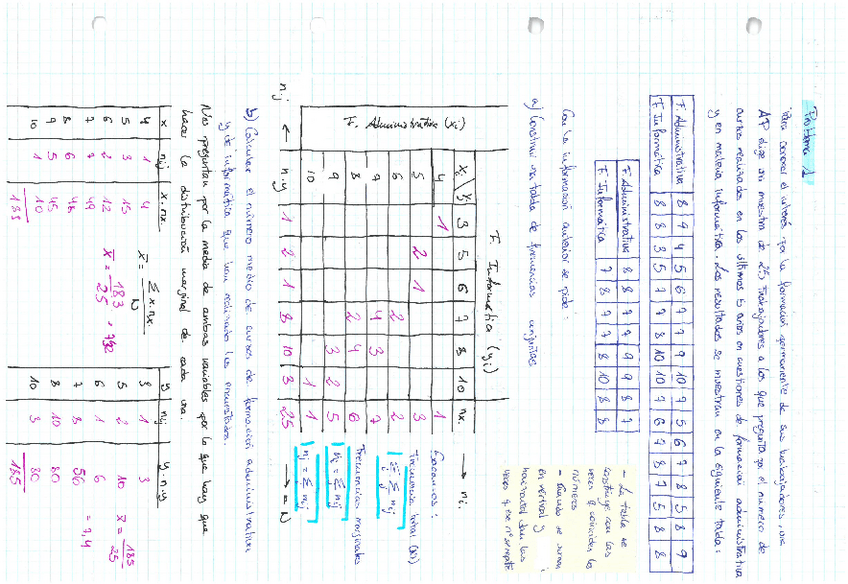 Problema 1
Para conocer el interés por la formación permanente de sus trabajadores, una
AP elige una muestra de 25 trabajadores a los que pregunta por el número de
cursos realizados en los últimos 5 años en cuestiones de formación administrativa
y en materia informática. Los resultados se muestran en la siguiente tabla:
F. Administrativa 8 7 4 5 6 7 9 10 9 5 6 7 8 5 8 9
F. Informática 8 8 3 5 7 7 8 10 10 7 6 8 7 5 8 8
F. Administrativa 8 8 7 7 9 9 8 7
F. Informática 7 8 7 7 8 10 8 8
Con la información anterior se pide:
a) Construir una tabla de frecuencias conjuntas
- La tabla se
construye con las
veces q coinciden los
números
- Cuando se suman
en vertical y
horizontal dan las
veces q ese nº se repite
F. Informática (yi)
F. Administrativa (xi)
xi yi 3 5 6 7 8 10 nx.
4 1 1
5 2 1 3
6 2 2
7 4 3 7
8 2 4 6
9 3 2 5
10 1 1
n.y 1 2 1 8 10 3 25
→ ni.
nj ←
→ = N
Frecuencia total
Frecuencias marginales
b) Calcular el número medio de cursos de formación administrativa
y de informática que han realizado los encuestados.
Nos preguntan por la media de ambas variables por lo que hay que
hacer la distribución marginal de cada una.
x nij x.nx.
4 1 4
5 3 15
6 2 12
7 7 49
8 6 48
9 5 45
10 1 10
x̄ = Σ x.nx. / N
x̄ = 183 / 25
y nij y.n.y
3 1 3
5 2 10
6 1 6
7 8 56
8 10 80
10 3 30
185
x̄ = 185 / 25 = 7,4